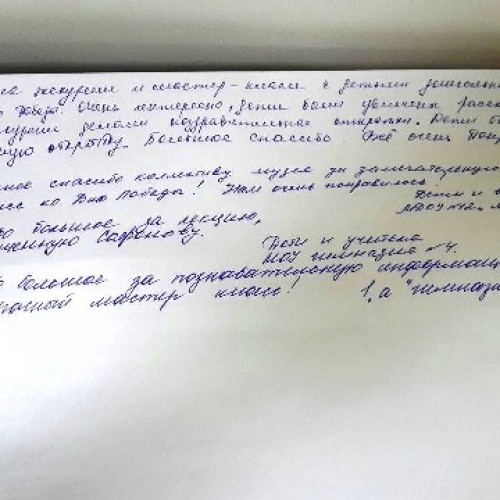 экскурсия и мастер-класс с детьми дошкольн
Победа. Очень интересно, дети были увлечены расс
делали поздравительные открытки. Дети
открытку. Большое спасибо. Всё очень понр
спасибо коллективу музея за замечательную
ко Дню Победы! Нам очень понравилось.
Дети и
о большое за лекцию,
Сафонову.
МДОУ №12
Дети и учителя
МОУ гимназия №4.
о большое за познавательную информац
мастер класс!
1 "а" гимнази